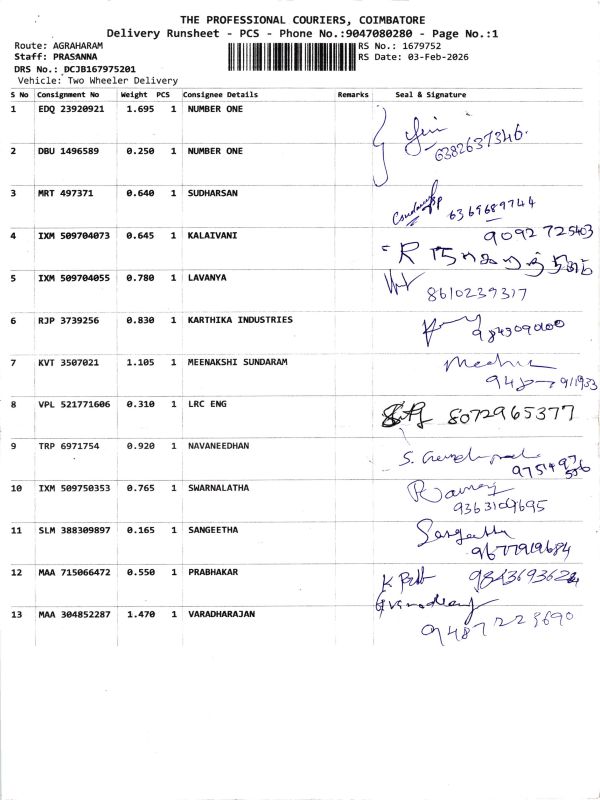 THE PROFESSIONAL COURIERS, COIMBATORE
Delivery Runsheet - PCS - Phone No.:9047080280 - Page No.:1
Route: AGRAHARAM RS No.: 1679752
Staff: PRASANNA RS Date: 03-Feb-2026
DRS No.: DCJB167975201
Vehicle: Two Wheeler Delivery
S No Consignment No Weight PCS Consignee Details Remarks Seal & Signature
1 EDQ 23920921 1.695 1 NUMBER ONE
6382637346
2 DBU 1496589 0.250 1 NUMBER ONE
3 MRT 497371 0.640 1 SUDHARSAN
6369689744
4 IXM 509704073 0.645 1 KALAIVANI 9092 725403
5 IXM 509704055 0.780 1 LAVANYA
8610239317
6 RJP 3739256 0.830 1 KARTHIKA INDUSTRIES
7 KVT 3507021 1.105 1 MEENAKSHI SUNDARAM
8 VPL 521771606 0.310 1 LRC ENG 8072965377
9 TRP 6971754 0.920 1 NAVANEEDHAN
10 IXM 509750353 0.765 1 SWARNALATHA
9363109695
11 SLM 388309897 0.165 1 SANGEETHA Sangeetha
9677919684
12 MAA 715066472 0.550 1 PRABHAKAR
13 MAA 304852287 1.470 1 VARADHARAJAN
9487223690